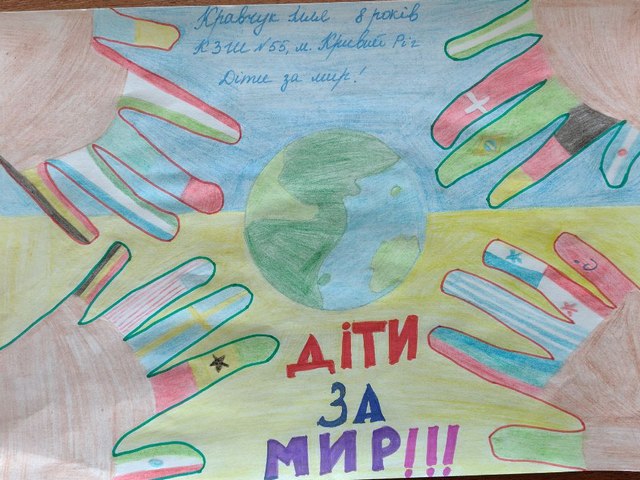 Кравчук Ілля 8 років
КЗШ №55, м. Кривий Ріг
Діти за мир!
ДІТИ
ЗА
МИР!!!